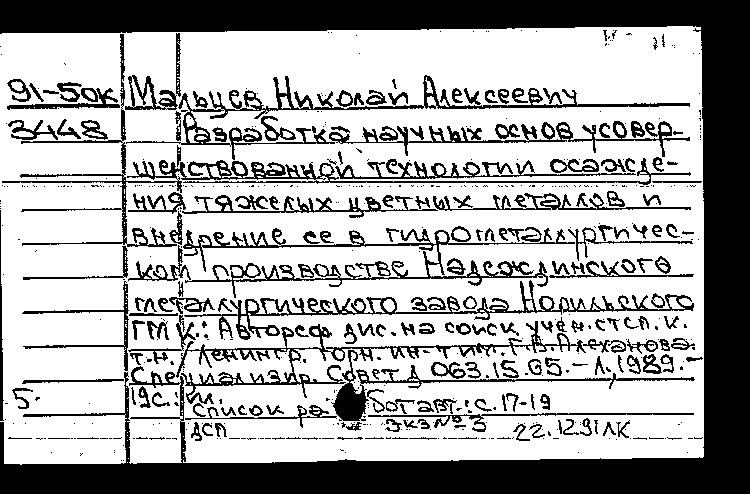 91-50к Мальцев Николай Алексеевич
3448 Разработка научных основ усовер-
шенствованной технологии осажде-
ния тяжелых цветных металлов и
внедрение ее в гидрометаллургичес-
ком производстве Надеждинского
металлургического завода Норильского
ГМК.: Автореф дис. на соиск учен. степ. к.
т.н. / Ленингр. горн. ин-т им. Г.В. Плеханова.
Специализир. Совет Д 063.15.05. - Л., 1989. -
5. 19с.: ил.
Список работ авт.: с. 17-19
ДСП экз № 3 22.12.91 ЛК